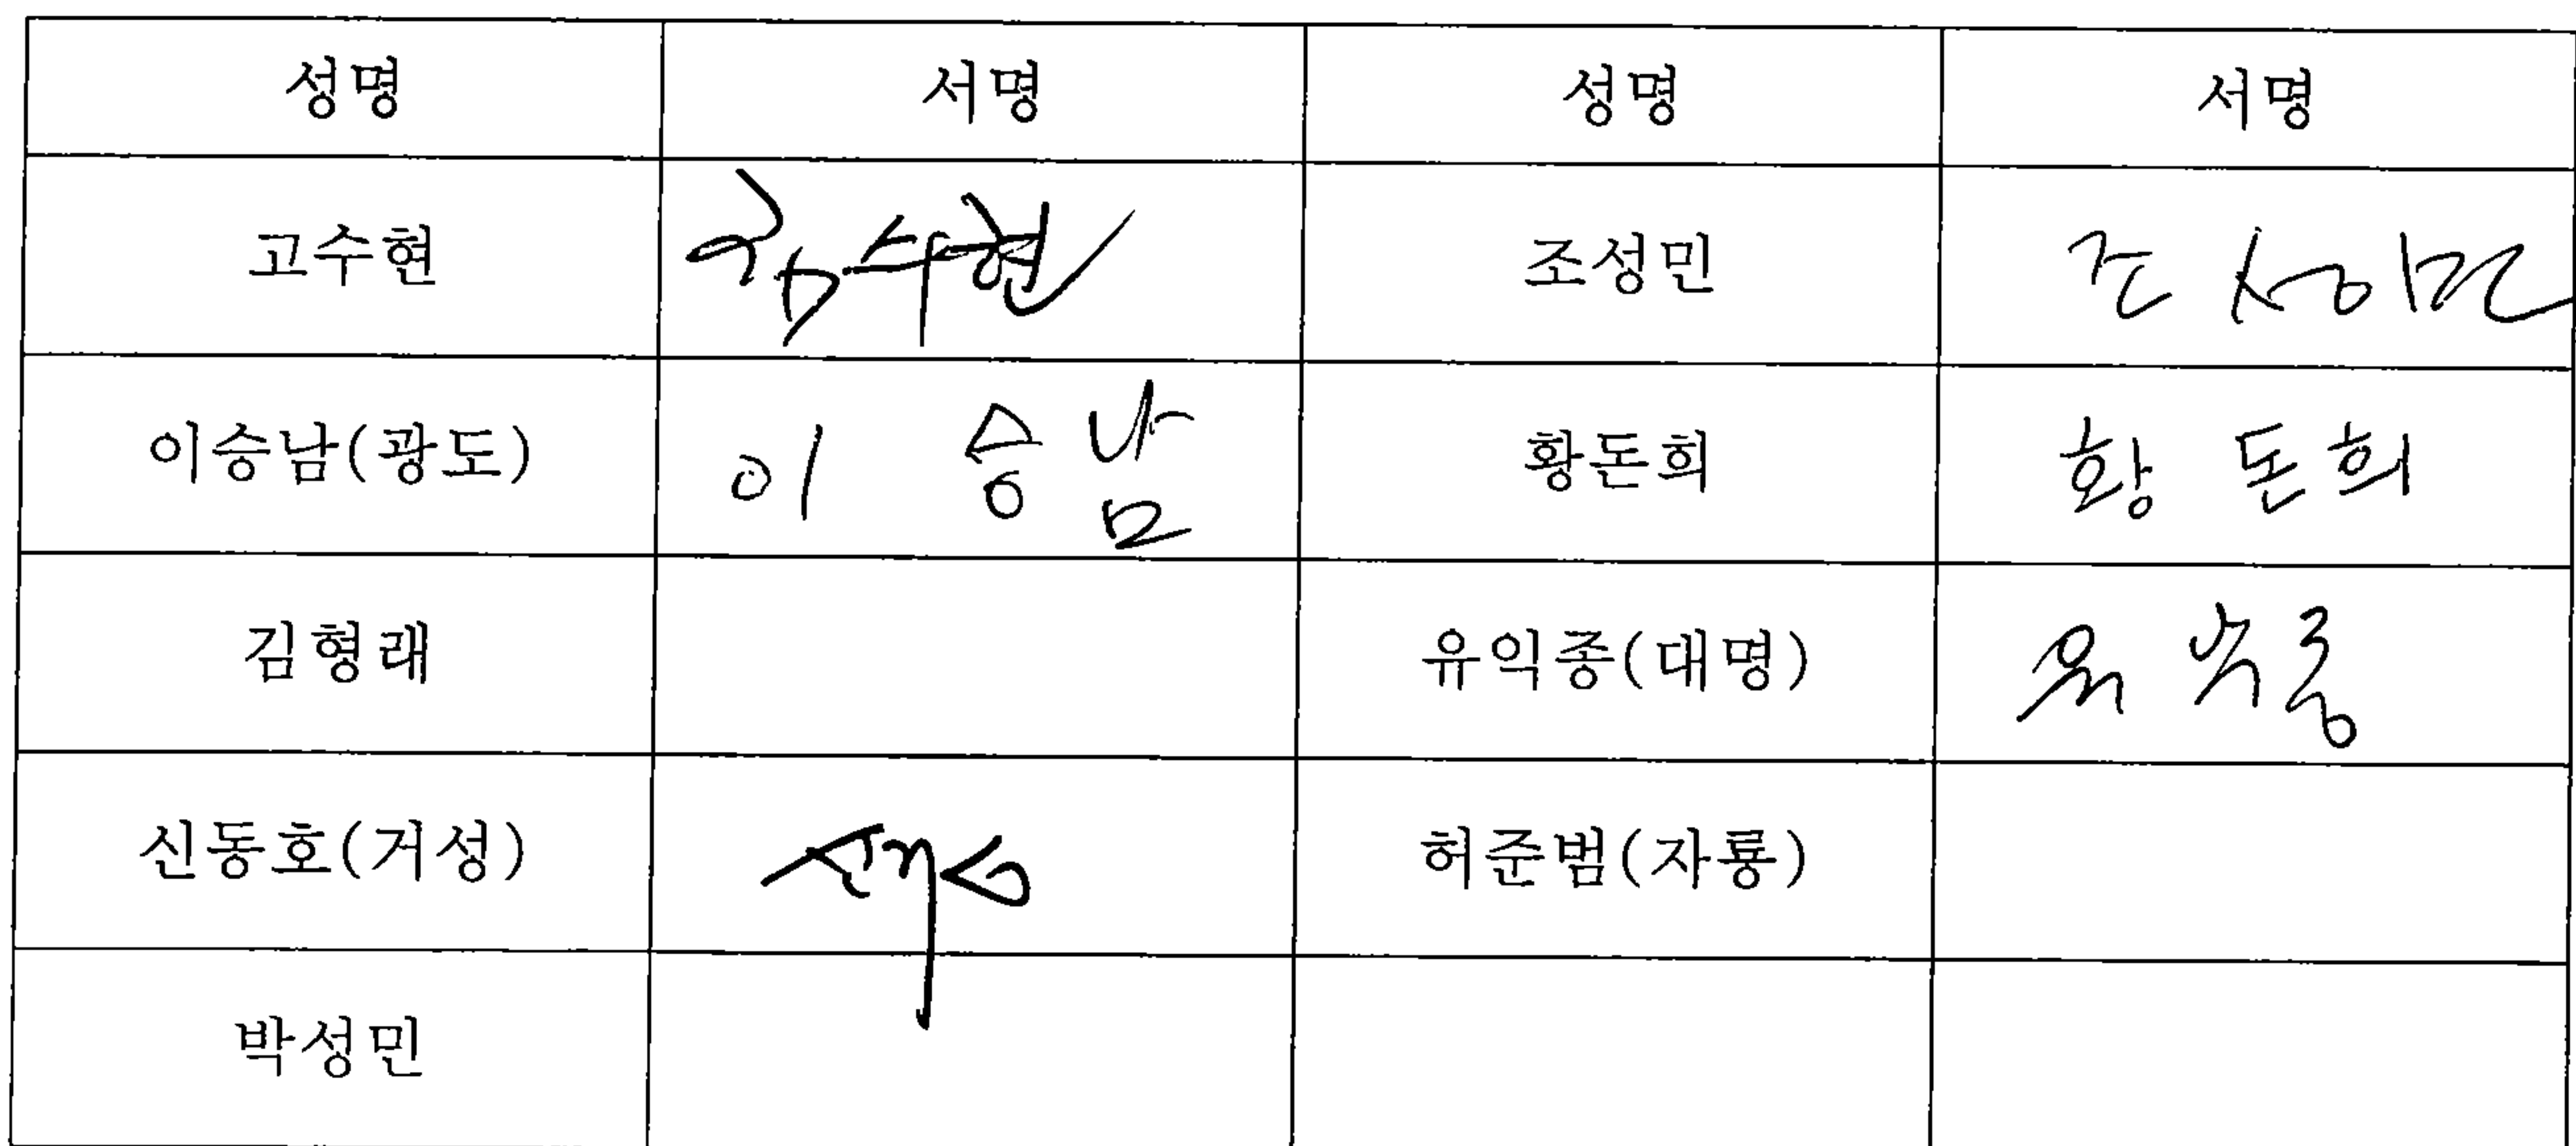 성명 서명 성명 서명
고수현 조성민 조성민
이승남(광도) 이 승남 황돈희 황돈희
김형래 유익종(대명)
신동호(거성) 허준범(자룡)
박성민